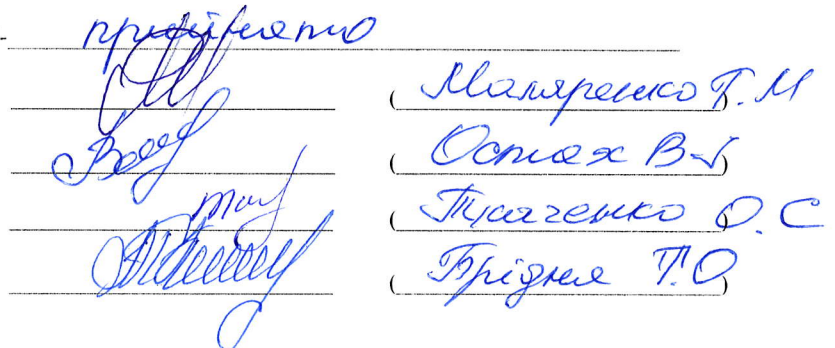 прийнято
(Маляренко Т.М)
(Остах В.)
(Ткаченко О.С
(Брідня Т.О)